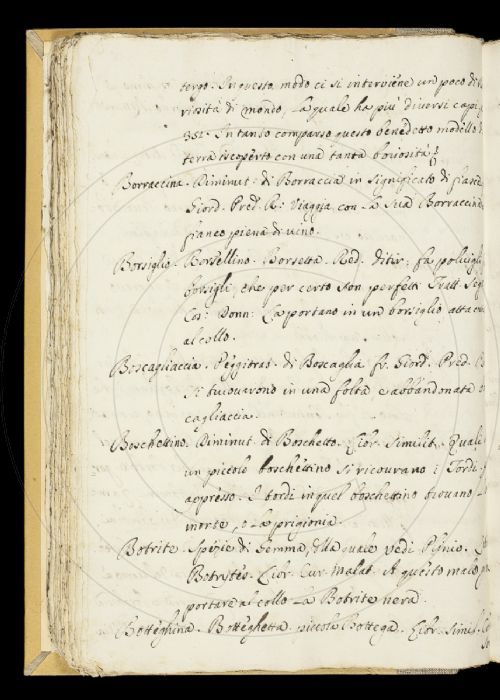 tergo. In questo modo ci si interviene un poco di
riosità di mondo, la quale ha più diversi capi
351. In tanto comparso questo benedetto modello
terra ricoperto con una tanta boiosità
Borraccina. Diminut. di Borraccia in significato di fiasc
Giord. Pred. R. Viaggia con la sua Borraccina
fianco piena di vino.
Borsiglio. Borsellino. Borsetta. Red. ditir: fa
borsigli, che per certo son perfetti Tratt. Seg
Cos: Donn: La portano in un borsiglio atta
al collo.
Boscagliaccia. Peggiorat. di Boscaglia fr. Giord. Pred.
Si trovarono in una folta e abbandonata
cagliaccia.
Boschettino. Diminut. di Boschetto. Libr. Similit. Quale
un piccolo boschettino si ricovrano i Tordi
appresso. I tordi in quel boschettino trovano
morte, o la prigionia.
Botrite. Spezie di Gemma, della quale vedi Plinio.
Botrytes. Libr. Cur. Malat. A questo male
portare al collo la Botrite nera.
Botteghina. Botteghetta. piccola bottega. Libr. Simil.